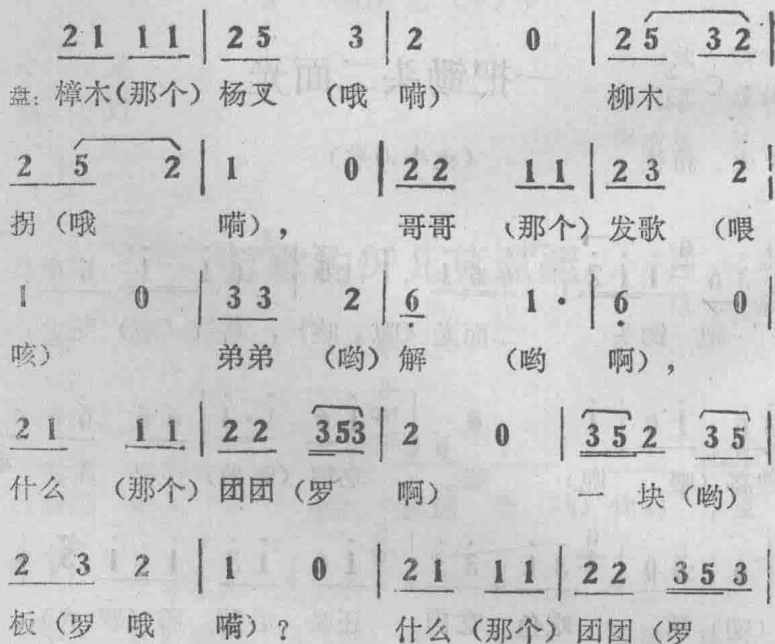 2 1 1 1 | 2 5 3 | 2 0 | 2 5 3 2 |
盘：樟木(那个) 杨叉 (哦 嗬) 柳木
2 5 2 | 1 0 | 2 2 1 1 | 2 3 2 |
拐 (哦 嗬)， 哥哥 (那个) 发歌 (喂
1 0 | 3 3 2 | 6 1 · | 6 0 |
咳) 弟弟 (哟) 解 (哟 啊)，
2 1 1 1 | 2 2 3 5 3 | 2 0 | 3 5 2 3 5 |
什么 (那个) 团团 (罗 啊) 一 块 (哟)
2 3 2 | 1 0 | 2 1 1 1 | 2 2 3 5 3 |
板 (罗 哦 嗬)？ 什么 (那个) 团团 (罗